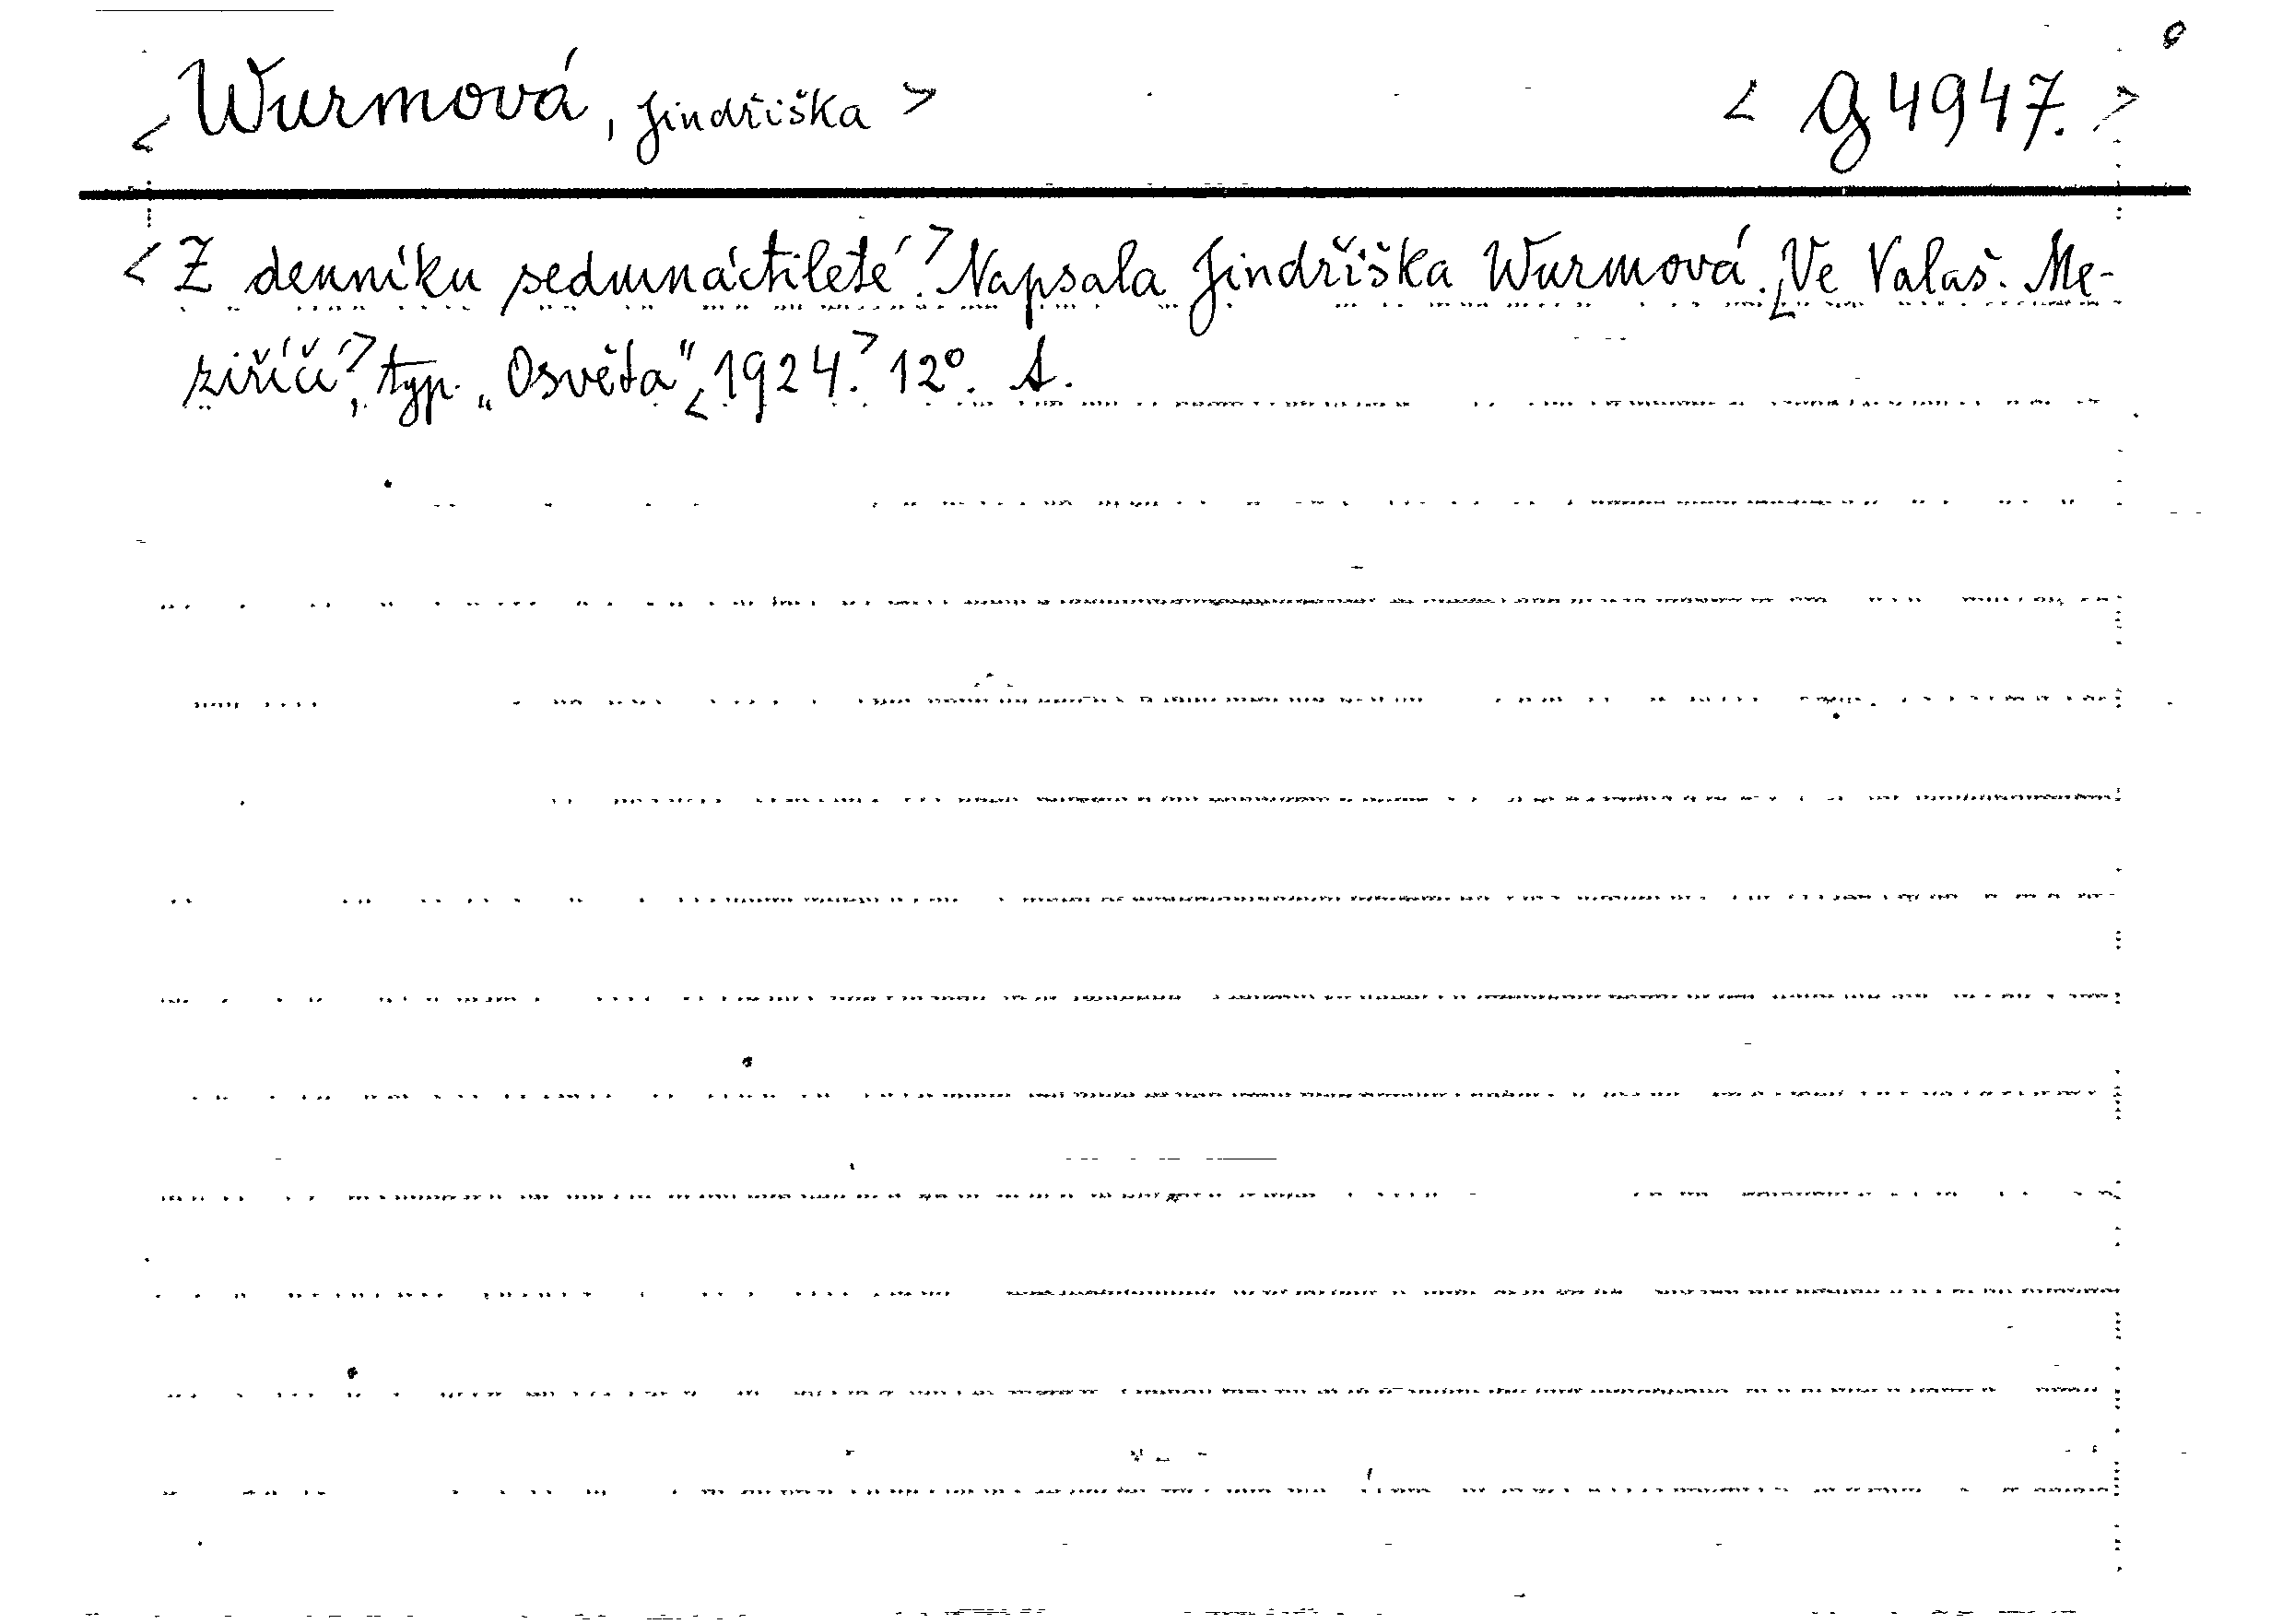 < Wurmová, Jindřiška > < G 4947. >
< Z denníku sedmnáctileté. > Napsala Jindřiška Wurmová. < Ve Valaš. Me-
ziříčí >, typ. „Osvěta", < 1924. > 12°. A.